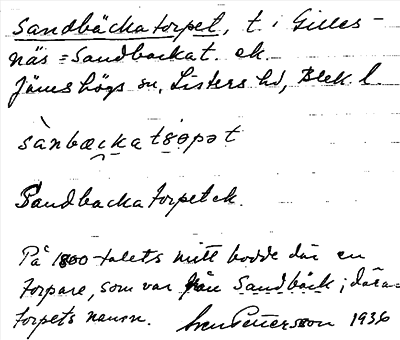 Sandbäckatorpet, t. i Gilles-
näs = Sandbackat. ek.
Jämshögs sn, Listers hd, Blek. l.
sànbæcka tɞpət
Sandbackatorpet ek.
På 1800-talets mitt bodde där en
torpare, som var från Sandbäck; därav
torpets namn. Sven Pettersson 1936